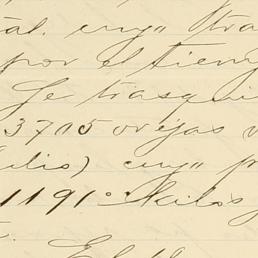 tal. cuyo tra
por el tiem
Se trasqui
3705 ovejas v
cuyo p
1191 kilos
El